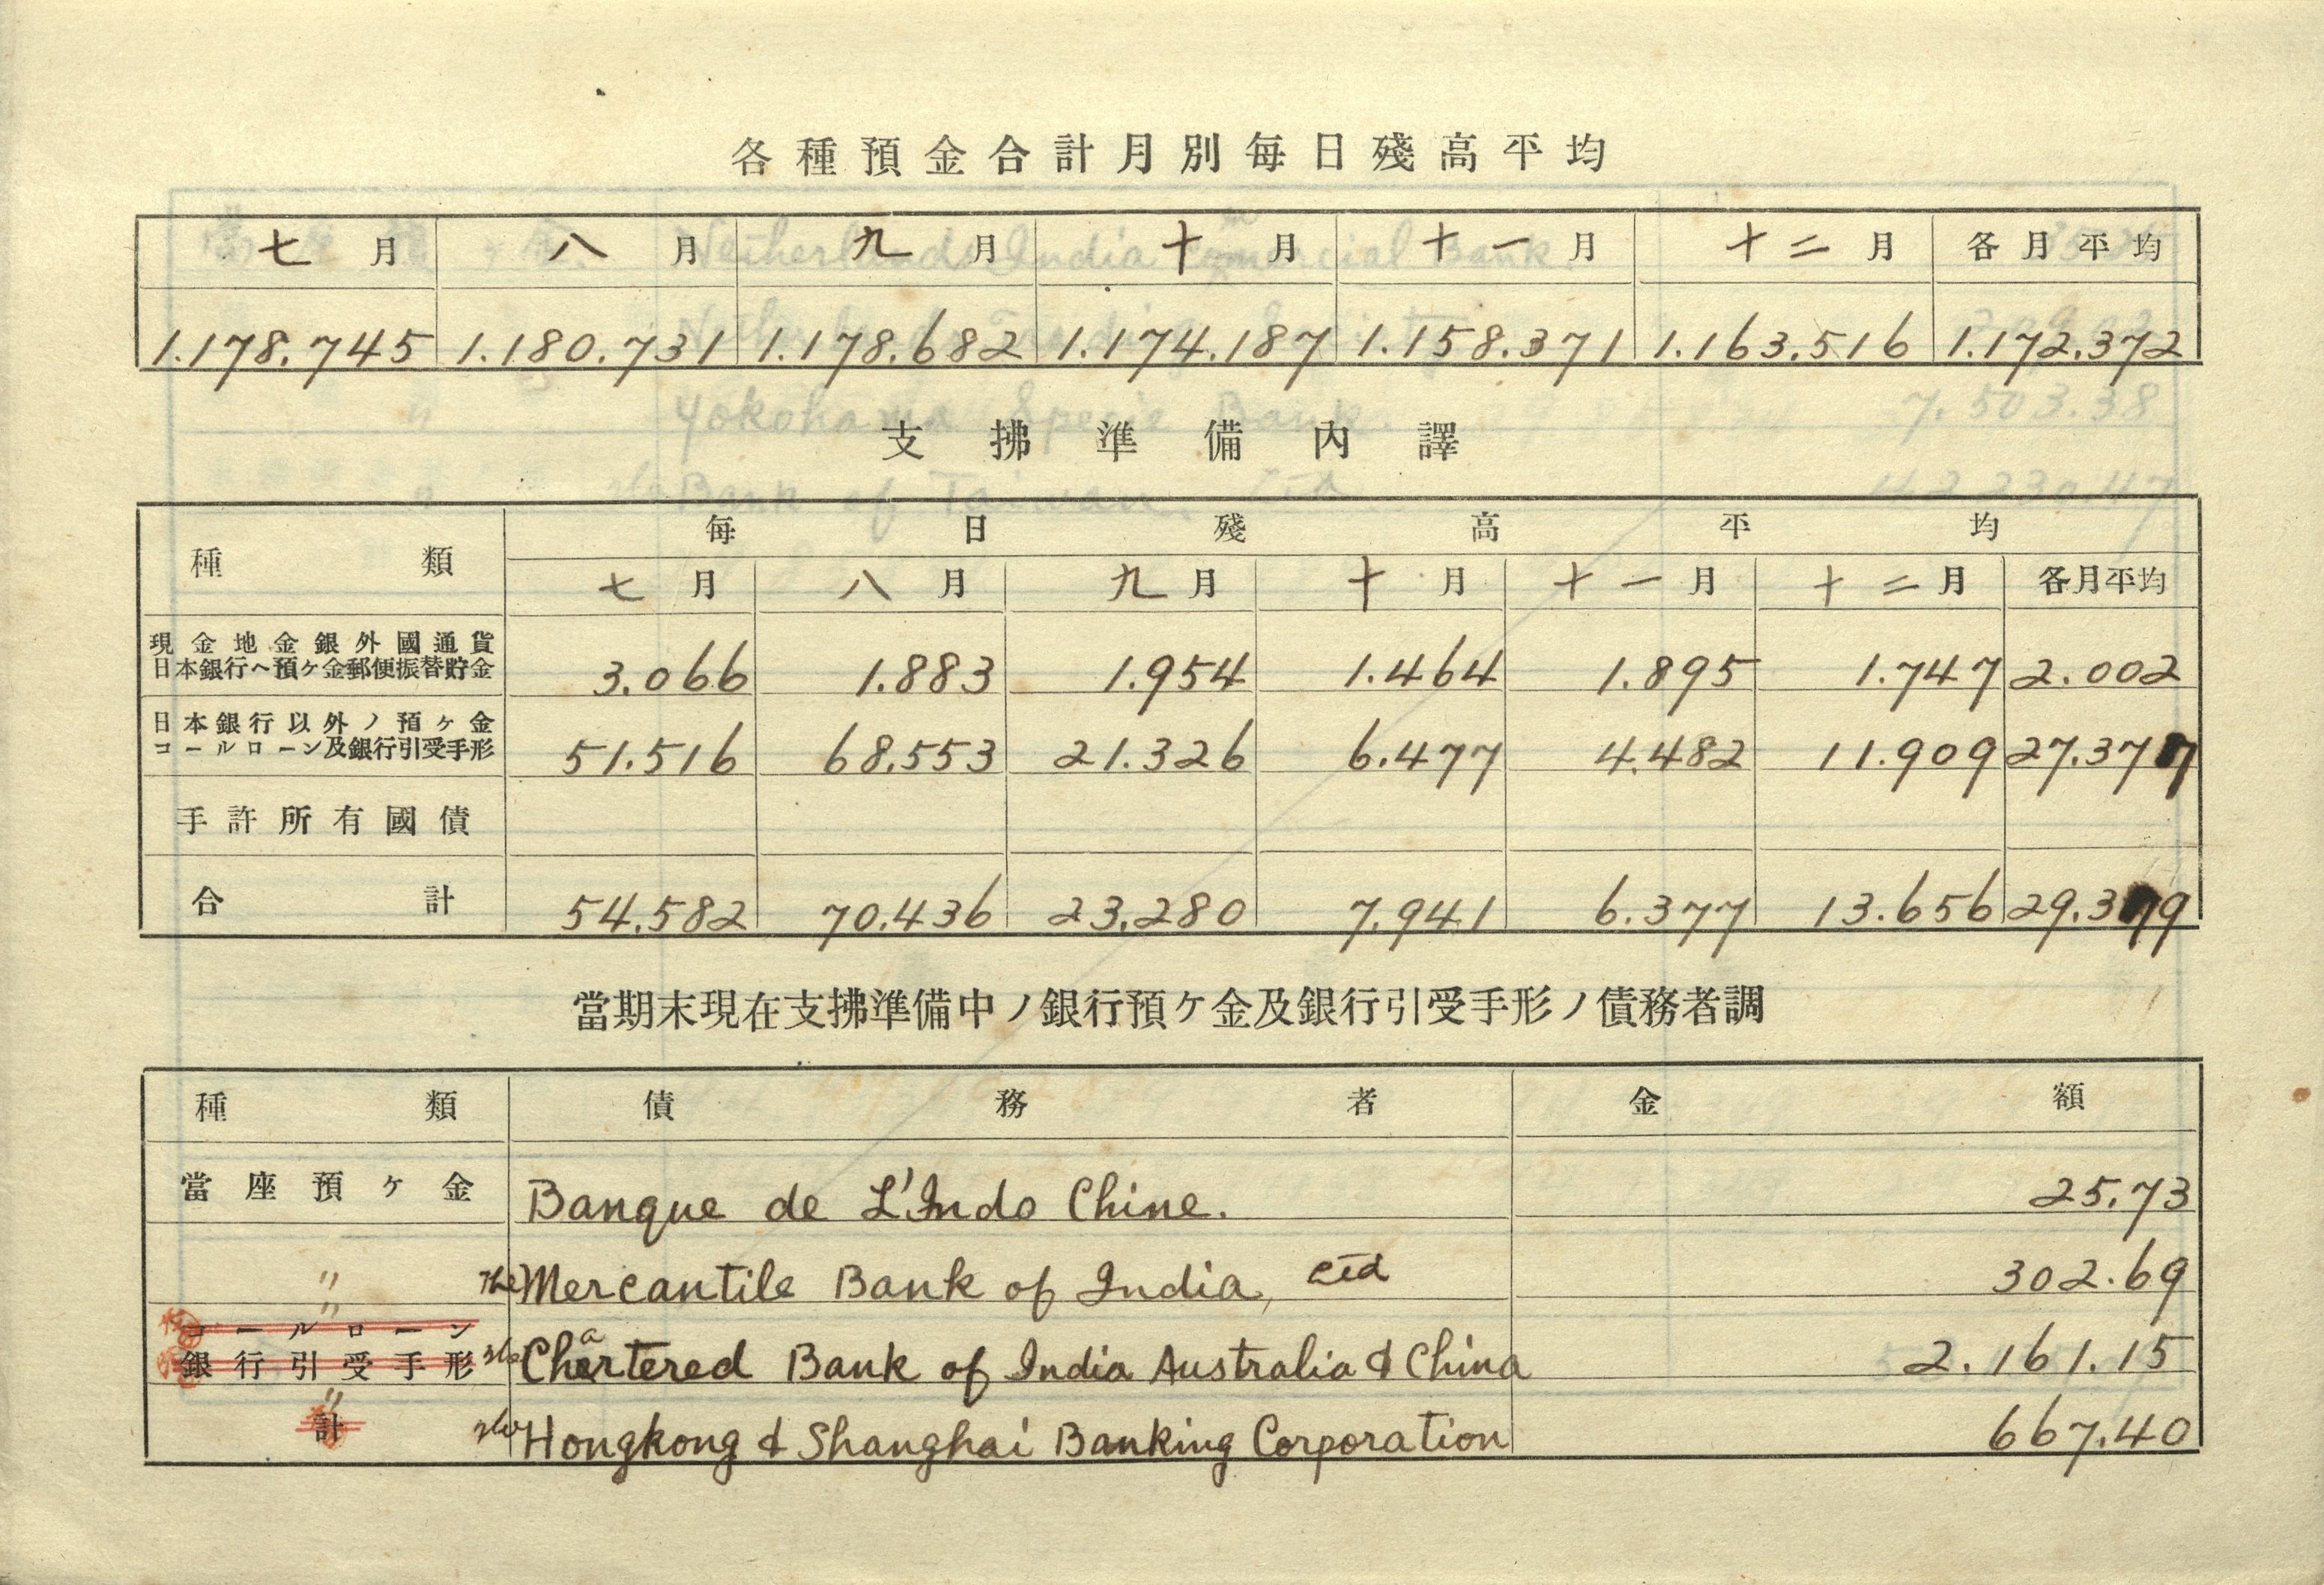 各種預金合計月別每日殘高平均
七月 八月 九月 十月 十一月 十二月 各月平均
1.178.745 1.180.731 1.178.682 1.174.187 1.158.371 1.163.516 1.172.372
支拂準備內譯
種類 每日殘高平均
七月 八月 九月 十月 十一月 十二月 各月平均
現金地金銀外國通貨
日本銀行ヘ預ヶ金郵便振替貯金 3.066 1.883 1.954 1.464 1.895 1.747 2.002
日本銀行以外ノ預ヶ金
コールローン及銀行引受手形 51.516 68.553 21.326 6.477 4.482 11.909 27.377
手許所有國債
合計 54.582 70.436 23.280 7.941 6.377 13.656 29.379
當期末現在支拂準備中ノ銀行預ケ金及銀行引受手形ノ債務者調
種類 債務者 金額
當座預ヶ金 Banque de L'Indo Chine. 25.73
〃 The Mercantile Bank of India, Ltd 302.69
〃
コールローン
銀行引受手形 The Chartered Bank of India Australia & China 2.161.15
〃
計 The Hongkong & Shanghai Banking Corporation 667.40